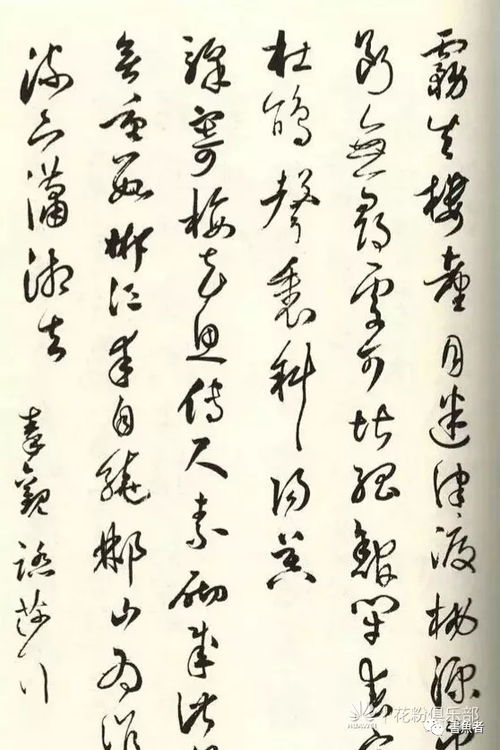 霧失樓臺月迷津渡桃源望
斷無尋處可堪孤館閉春寒
杜鵑聲裏斜陽暮
驛寄梅花魚傳尺素砌成此恨
無重數郴江幸自繞郴山為誰
流下瀟湘去
秦觀踏莎行
HUAWEI 花粉俱乐部